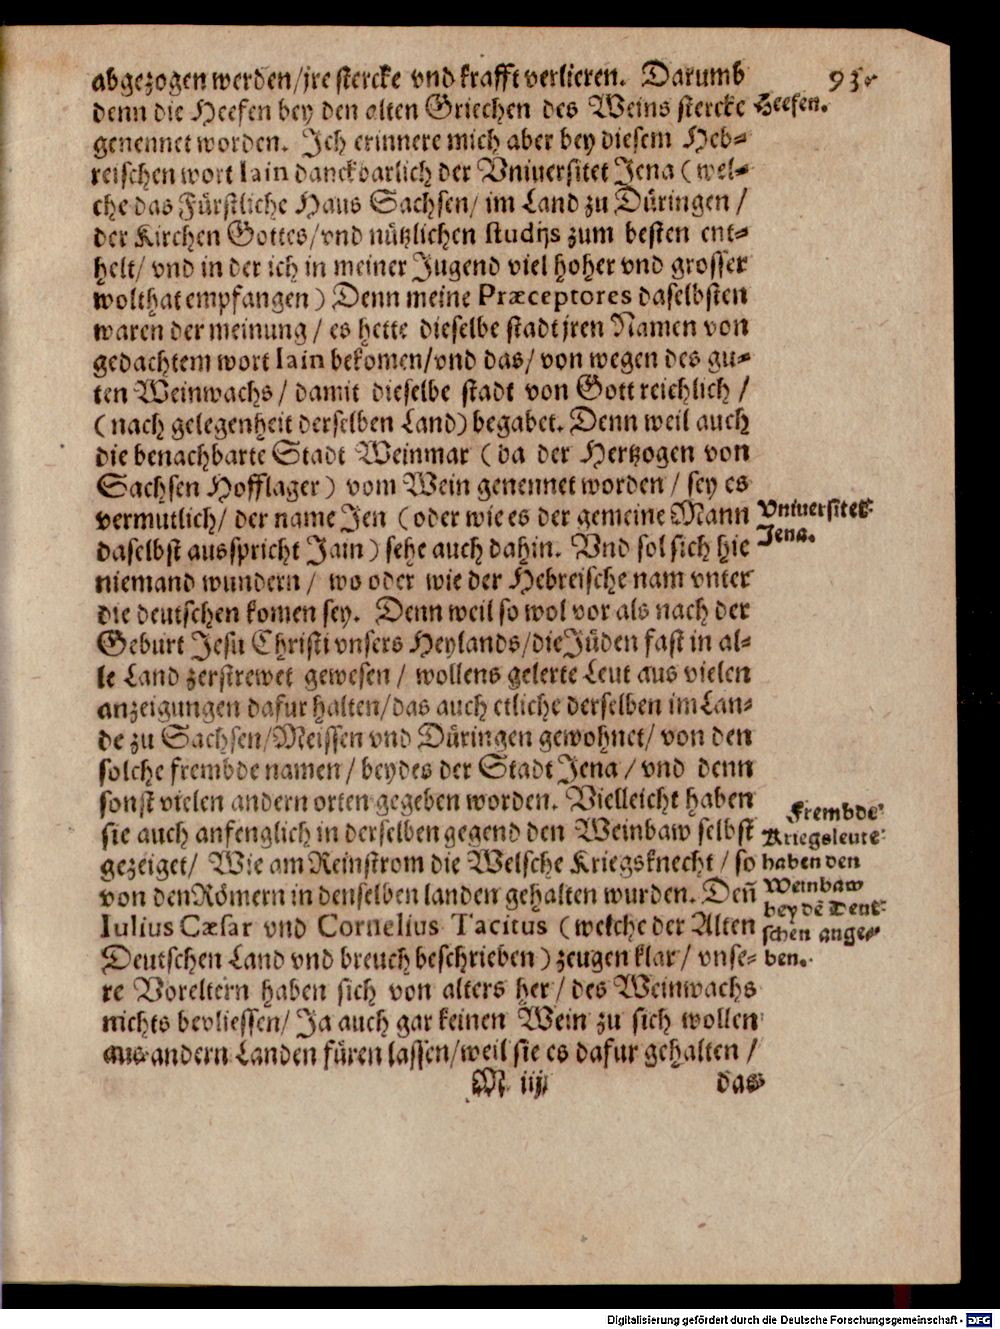 93.
abgezogen werden/ jre stercke vnd krafft verlieren. Darumb
denn die Heefen bey den alten Griechen des Weins stercke
Heefen.
genennet worden. Ich erinnere mich aber bey diesem Heb-
reischen wort Iain danckbarlich der Vniuersitet Jena (wel-
che das Fürstliche Haus Sachsen/ im Land zu Düringen /
der Kirchen Gottes/ vnd nützlichen studijs zum besten ent-
helt/ vnd in der ich in meiner Jugend viel hoher vnd grosser
wolthat empfangen) Denn meine Præceptores daselbsten
waren der meinung / es hette dieselbe stadt jren Namen von
gedachtem wort Iain bekomen/ vnd das/ von wegen des gu-
ten Weinwachs / damit dieselbe stadt von Gott reichlich /
(nach gelegenheit derselben Land) begabet. Denn weil auch
die benachbarte Stadt Weinmar (da der Hertzogen von
Sachsen Hofflager) vom Wein genennet worden / sey es
vermutlich/ der name Jen (oder wie es der gemeine Mann
Vniuersitet
Jena.
daselbst ausspricht Jain) sehe auch dahin. Vnd sol sich hie
niemand wundern / wo oder wie der Hebreische nam vnter
die deutschen komen sey. Denn weil so wol vor als nach der
Geburt Jesu Christi vnsers Heylands/ die Jüden fast in al-
le Land zerstrewet gewesen / wollens gelerte Leut aus vielen
anzeigungen dafur halten/ das auch etliche derselben im Lan-
de zu Sachsen/ Meissen vnd Düringen gewohnet/ von den
solche frembde namen / beydes der Stadt Jena / vnd denn
sonst vielen andern orten gegeben worden. Vielleicht haben
sie auch anfenglich in derselben gegend den Weinbaw selbst
gezeiget/ Wie am Reinstrom die Welsche Kriegsknecht / so
von den Römern in denselben landen gehalten wurden. Deñ
Frembde
Kriegsleute
haben den
Weinbaw
bey dē Deut-
schen ange-
ben.
Iulius Cæsar vnd Cornelius Tacitus (welche der Alten
Deutschen Land vnd breuch beschrieben) zeugen klar / vnse-
re Voreltern haben sich von alters her / des Weinwachs
nichts bevliessen/ Ja auch gar keinen Wein zu sich wollen
aus andern Landen füren lassen/ weil sie es dafur gehalten /
M iij
das
Digitalisierung gefördert durch die Deutsche Forschungsgemeinschaft - DFG